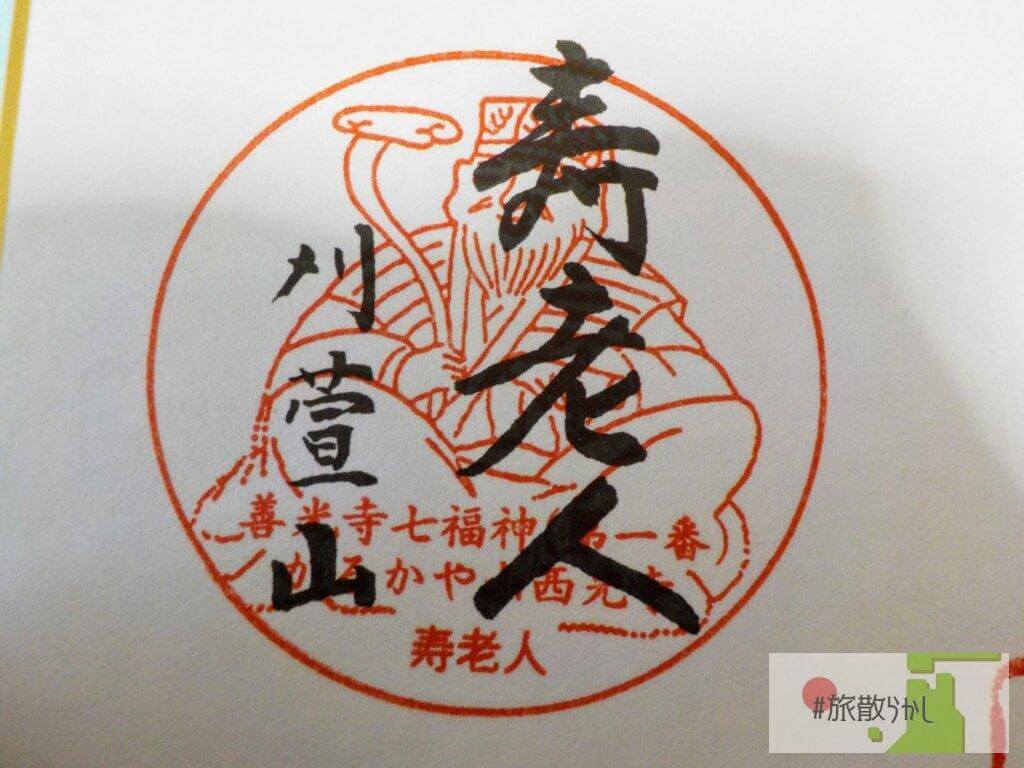 寿老人
刈萱山
善光寺七福神 第一番
かるかや山西光寺
寿老人
#旅散らかし